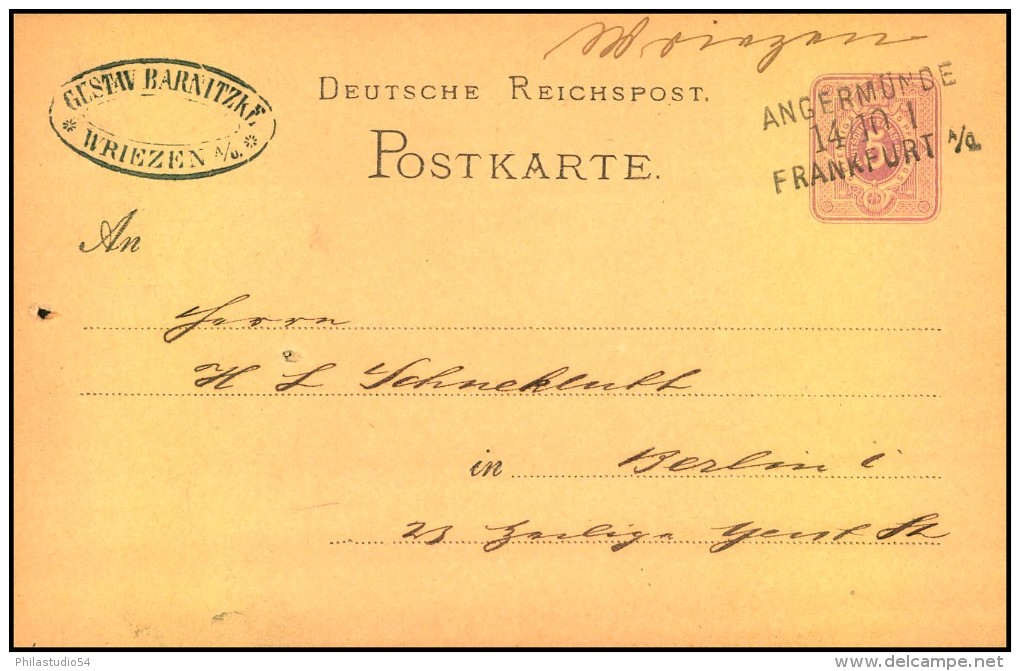 Wriezen
GUSTAV BARNITZKE
WRIEZEN A/O.
DEUTSCHE REICHSPOST.
POSTKARTE.
ANGERMÜNDE
14 10 1
FRANKFURT A/O.
5
An
Herrn
H L Schneklutt
in Berlin C
23 Heilige Geist St
Philastudio54
delcampe.net